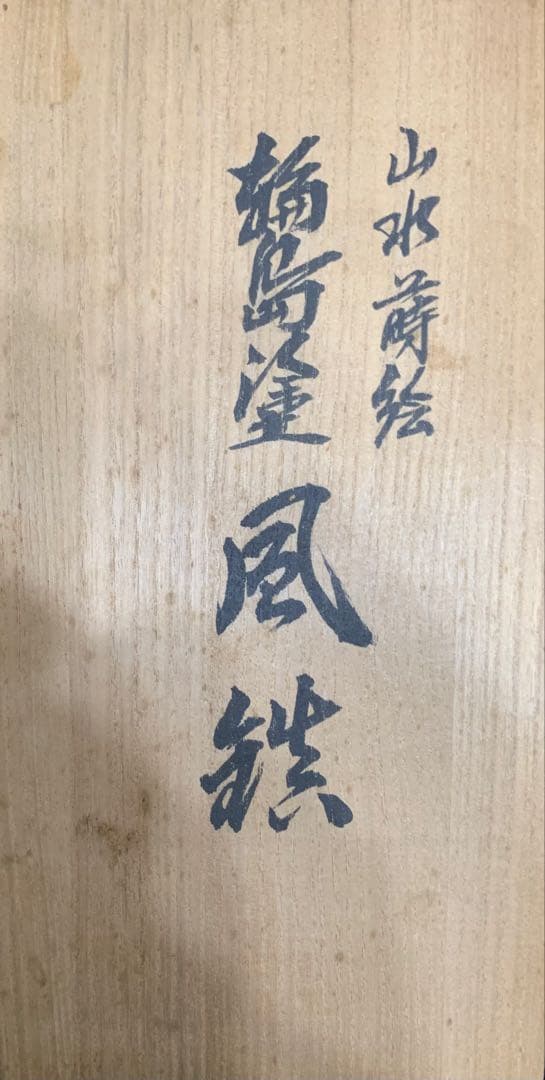 山水蒔絵
輪島塗 風鎮